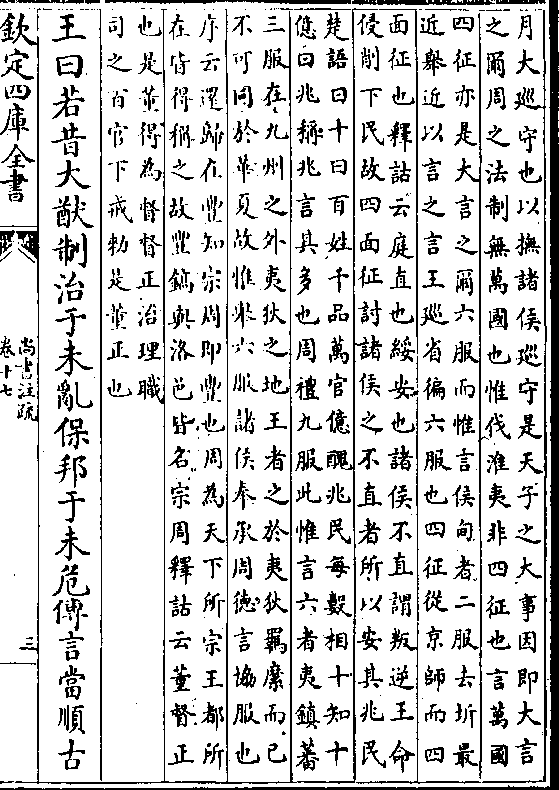 月大巡守也以撫諸侯巡守是天子之大事因即大言
之爾周之法制無萬國也惟伐淮夷非四征也言萬國
四征亦是大言之爾六服而惟言侯甸者二服去圻最
近舉近以言之言王巡省徧六服也四征從京師而四
面征也釋詁云庭直也綏安也諸侯不直謂叛逆王命
侵削下民故四面征討諸侯之不直者所以安其兆民
楚語曰十曰百姓千品萬官億醜兆民每數相十知十
億曰兆稱兆言其多也周禮九服此惟言六者夷鎮蕃
三服在九州之外夷狄之地王者之於夷狄羈縻而已
不可同於華夏故惟舉六服諸侯奉承周德言協服也
序云還歸在豐知宗周即豐也周為天下所宗王都所
在皆得稱之故豐鎬與洛邑皆名宗周釋詁云董督正
也是董得為督督正治理職
司之百官下戒勅是董正也
王曰若昔大猷制治于未亂保邦于未危傳言當順古
欽定四庫全書
尚書注疏
卷十七
三